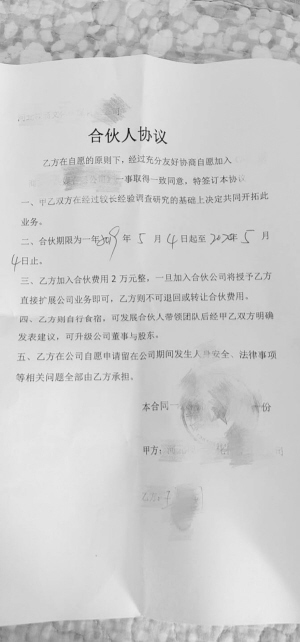 合伙人协议
乙方在自愿的原则下，经过充分友好协商自愿加入
一事取得一致同意，特签订本协议
一、甲乙双方在经过较长经验调查研究的基础上决定共同开拓此
业务。
二、合伙期限为一年2019年5月4日起至2020年5月
4日止。
三、乙方加入合伙费用2万元整，一旦加入合伙公司将授予乙方
直接扩展公司业务即可，乙方则不可退回或转让合伙费用。
四、乙方则自行食宿，可发展合伙人带领团队后经甲乙双方明确
发表建议，可升级公司董事与股东。
五、乙方在公司自愿申请留在公司期间发生人身安全、法律事项
等相关问题全部由乙方承担。
本合同一 份
甲方：